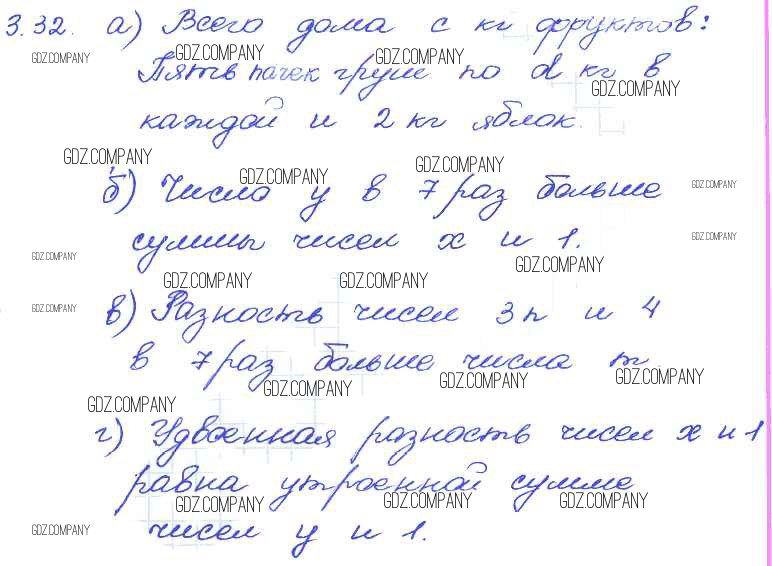 3.32. а) Всего дома с кг фруктов:
GDZ.COMPANY GDZ.COMPANY GDZ.COMPANY
Пять пачек груш по d кг в
GDZ.COMPANY
каждой и 2 кг яблок.
GDZ.COMPANY GDZ.COMPANY GDZ.COMPANY
б) Число у в 7 раз больше
GDZ.COMPANY
суммы чисел х и 1.
GDZ.COMPANY
GDZ.COMPANY GDZ.COMPANY
GDZ.COMPANY GDZ.COMPANY
в) Разность чисел 3n и 4
GDZ.COMPANY
в 7 раз больше числа m
GDZ.COMPANY GDZ.COMPANY GDZ.COMPANY
GDZ.COMPANY
г) Удвоенная разность чисел х и 1
равна утроенной сумме
GDZ.COMPANY GDZ.COMPANY GDZ.COMPANY
чисел у и 1.
GDZ.COMPANY